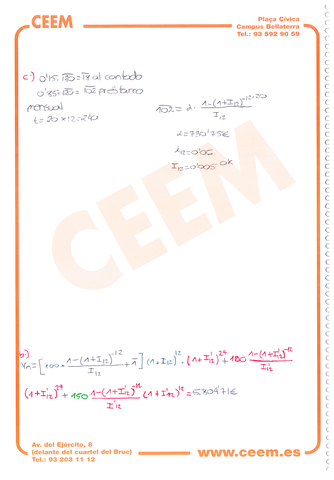 CEEM
Plaça Cívica
Campus Bellaterra
Tel.: 93 592 90 59
c) 0'15·120 = 18 al contado
0'85·120 = 102 préstamo
mensual
t = 20 x 12 = 240
102 = α · 1-(1+I₁₂)^-12·20 / I₁₂
α = 730'75€
i₁₂ = 0'06
I₁₂ = 0'005 OK
CEEM
b)
(1+I₁₂)^12 · (1+I'₁₂)^24 + 180 1-(1+I'₁₂)^-12 / I'₁₂
(1+I'₁₂)^24 + 150 1-(1+I'₁₂)^-12 / I'₁₂ (1+I'₁₂)^12 =
Av. del Ejército, 8
(delante del cuartel del Bruc)
Tel.: 93 203 11 12
www.ceem.es